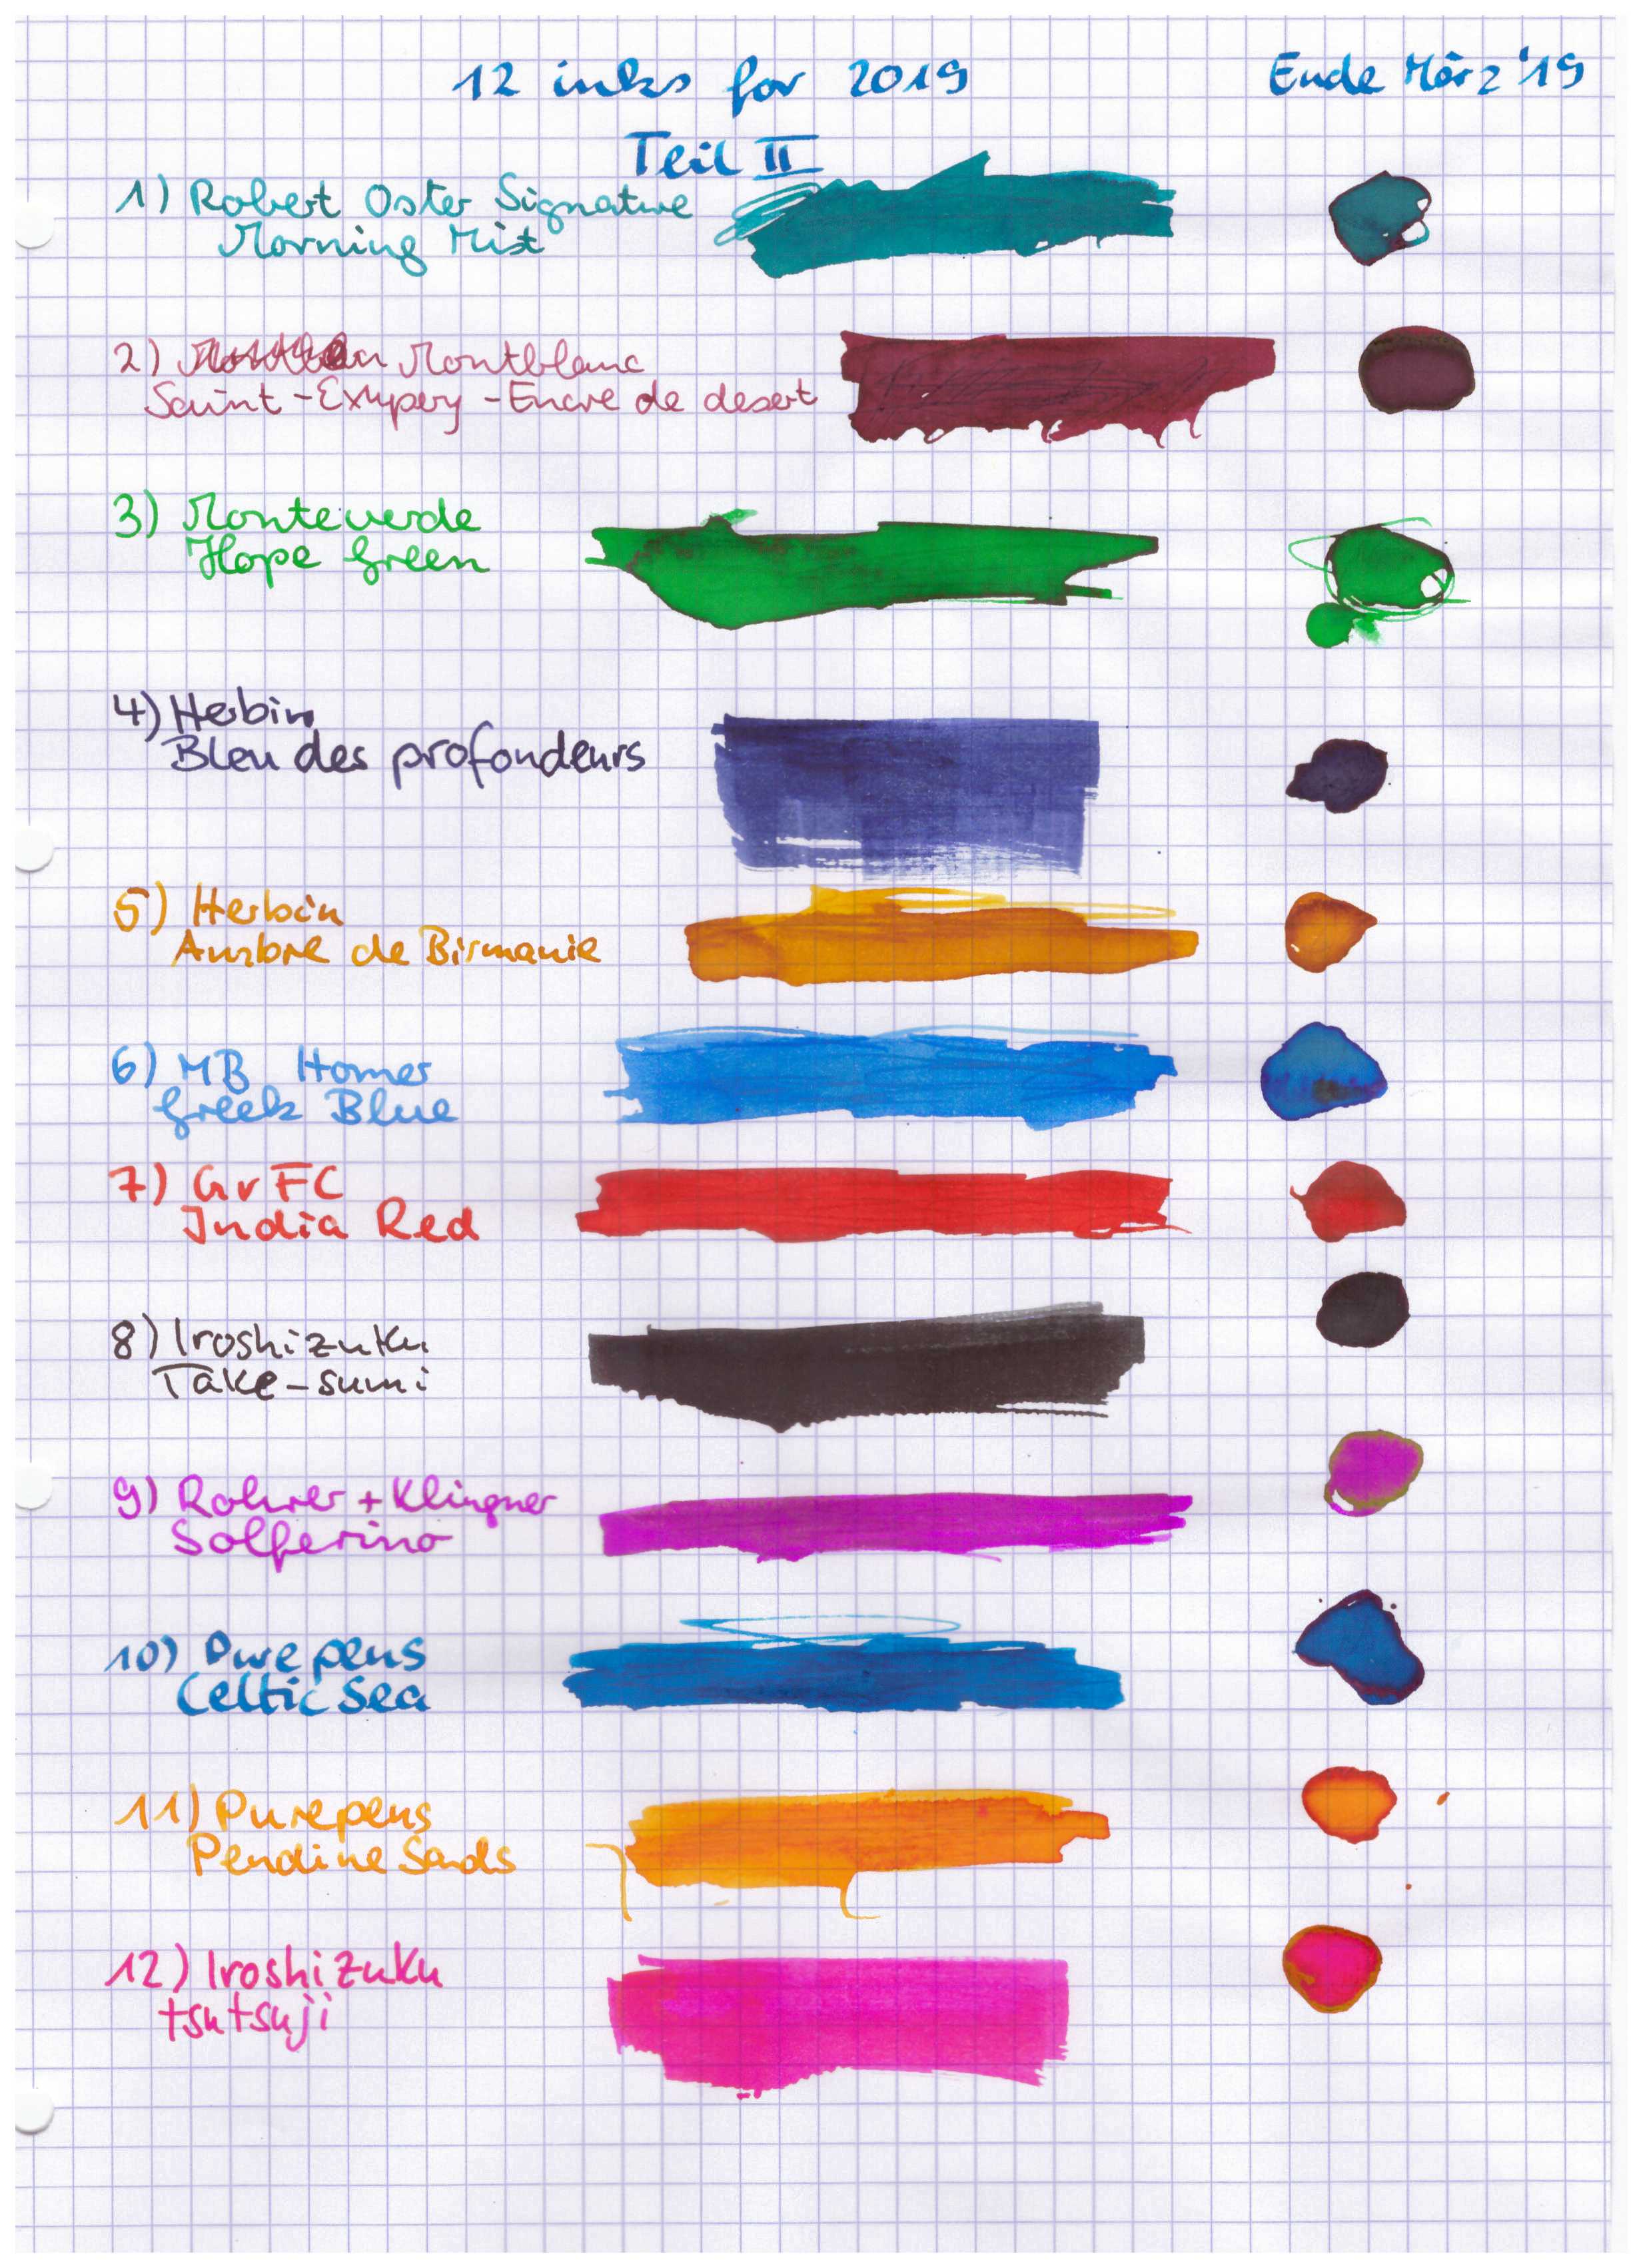 12 inks for 2019
Ende März '19
Teil II
1) Robert Oster Signature
Morning Mist
2) Montblanc
Saint-Exupery-Encre de desert
3) Monteverde
Hope Green
4) Herbin
Bleu des profondeurs
5) Herbin
Ambre de Birmanie
6) MB Homer
Greek Blue
7) GvFC
India Red
8) Iroshizuku
Take-sumi
9) Rohrer + Klingner
Solferino
10) Pure pens
Celtic Sea
11) Purepens
Pendine Sands
12) Iroshizuku
tsutsuji